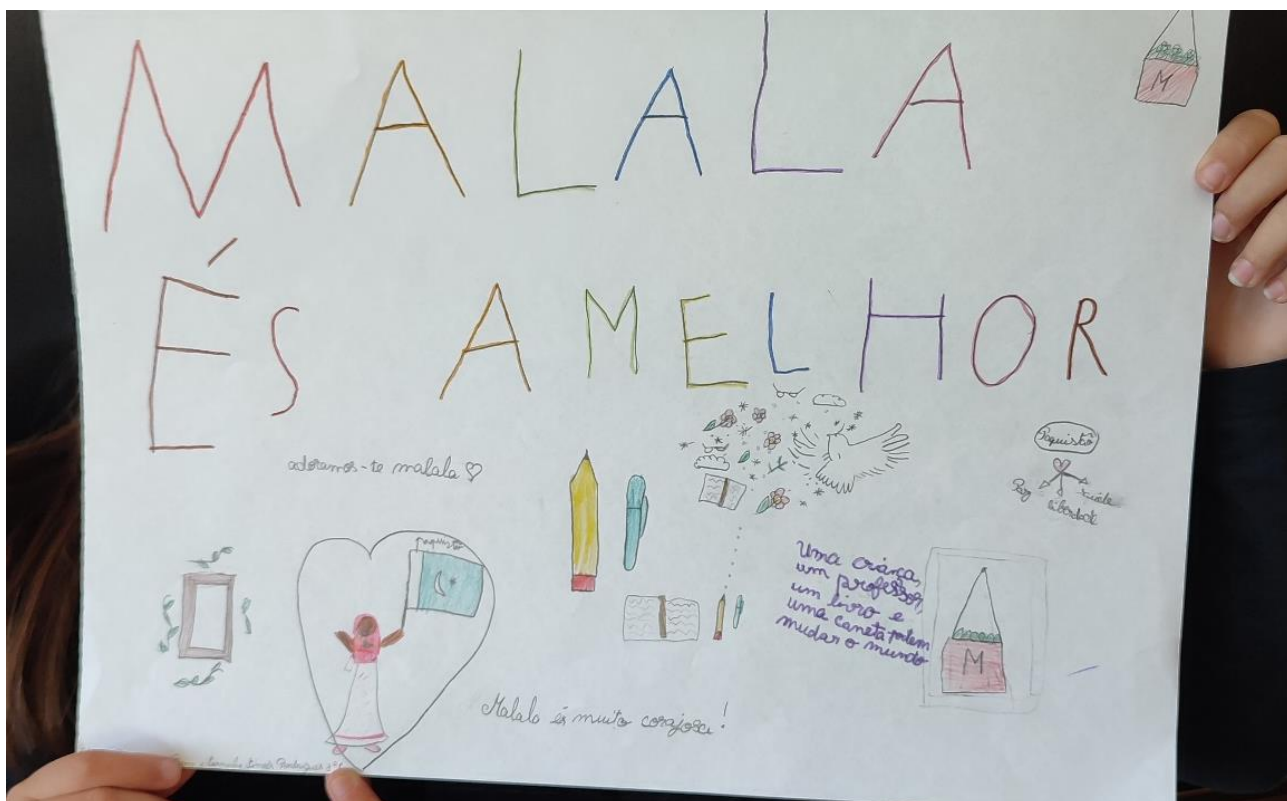 MALALA
M
ÉS A MELHOR
adoramos-te malala
Paquistão
Paz
liberdade
paquistão
Uma criança,
um professor,
um livro e
uma caneta podem
mudar o mundo
M
Malala és muito corajosa!